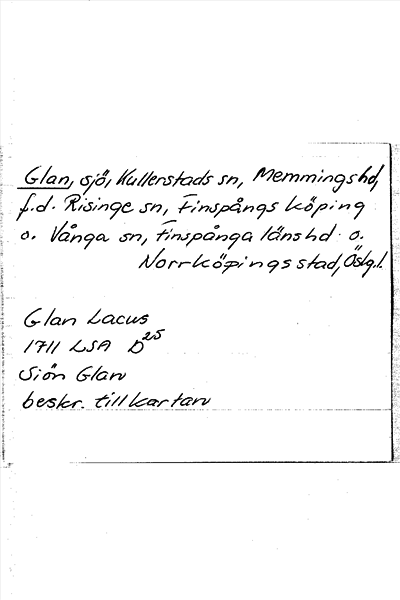 Glan, sjö, Kullerstads sn, Memmings hd,
f.d. Risinge sn, Finspångs köping
o. Vånga sn, Finspånga länshd o.
Norrköpings stad, Östg.l.
Glan Lacus
1711 LSA D25
Siön Glan
beskr. till kartan